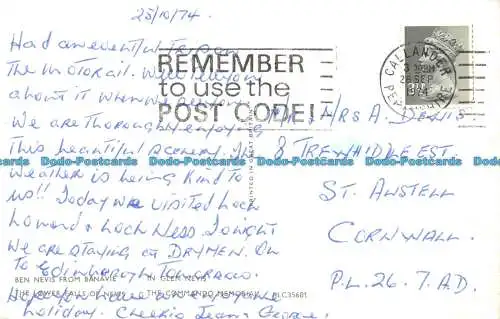 25/10/74.
Had an eventful trip on
the Motorail. Will tell you
about it when we
We are thoroughly enjoying
this beautiful scenery.
Weather is being kind to
us!! Today we visited Loch
Lomond & Loch Ness. Tonight
we are staying at DRYMEN. On
to Edinburgh Tomorrow.
Hope you have a
holiday. Cheerio Jean & George.
REMEMBER
to use the
POST CODE!
CALLANDER
PERTHSHIRE
28 SEP
1974
3½P
Mr & Mrs A. Dennis
8 TREWHIDDLE EST.
ST. AUSTELL
CORNWALL.
P.L. 26. 7. A.D.
PRINTED IN GREAT BRITAIN
BEN NEVIS FROM BANAVIE IN GLEN NEVIS
THE LOWER FALLS OF NEVIS THE COMMANDO MEMORIAL PLC35601
Bodo-Postcards Bodo-Postcards Bodo-Postcards Bodo-Postcards Bodo-Postcards Bodo-Postcards